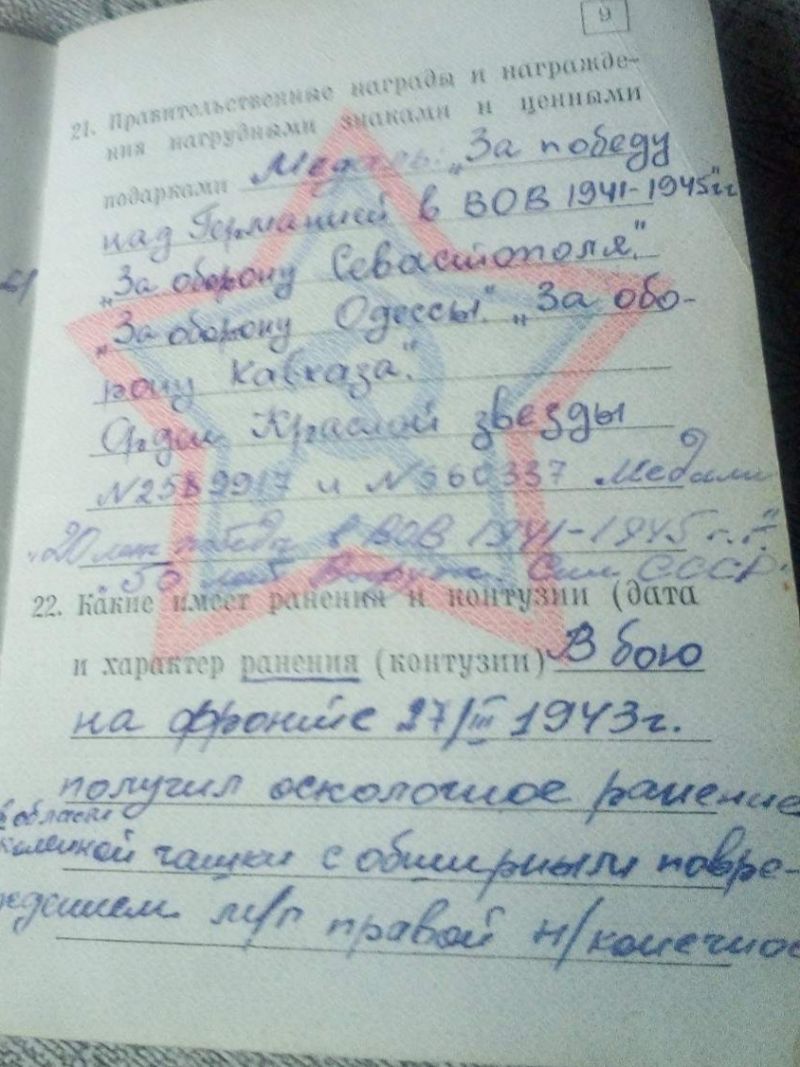 9
21. Правительственные награды и награжде-
ния нагрудными знаками и ценными
подарками Медаль: „За победу
над Германией в ВОВ 1941-1945"гг
„За оборону Севастополя."
„За оборону Одессы." „За обо-
рону Кавказа."
Орден Красной звезды
и Медали
„20 лет победы в ВОВ 1941-1945 г.г."
„50 лет Вооруж. Сил СССР"
22. Какие имеет ранения и контузии (дата
и характер ранения (контузии) В бою
на фронте 27/III 1943г.
получил осколочное ранение
в области
коленной чашки с обширным повре-
ждением м/т правой н/конечнос